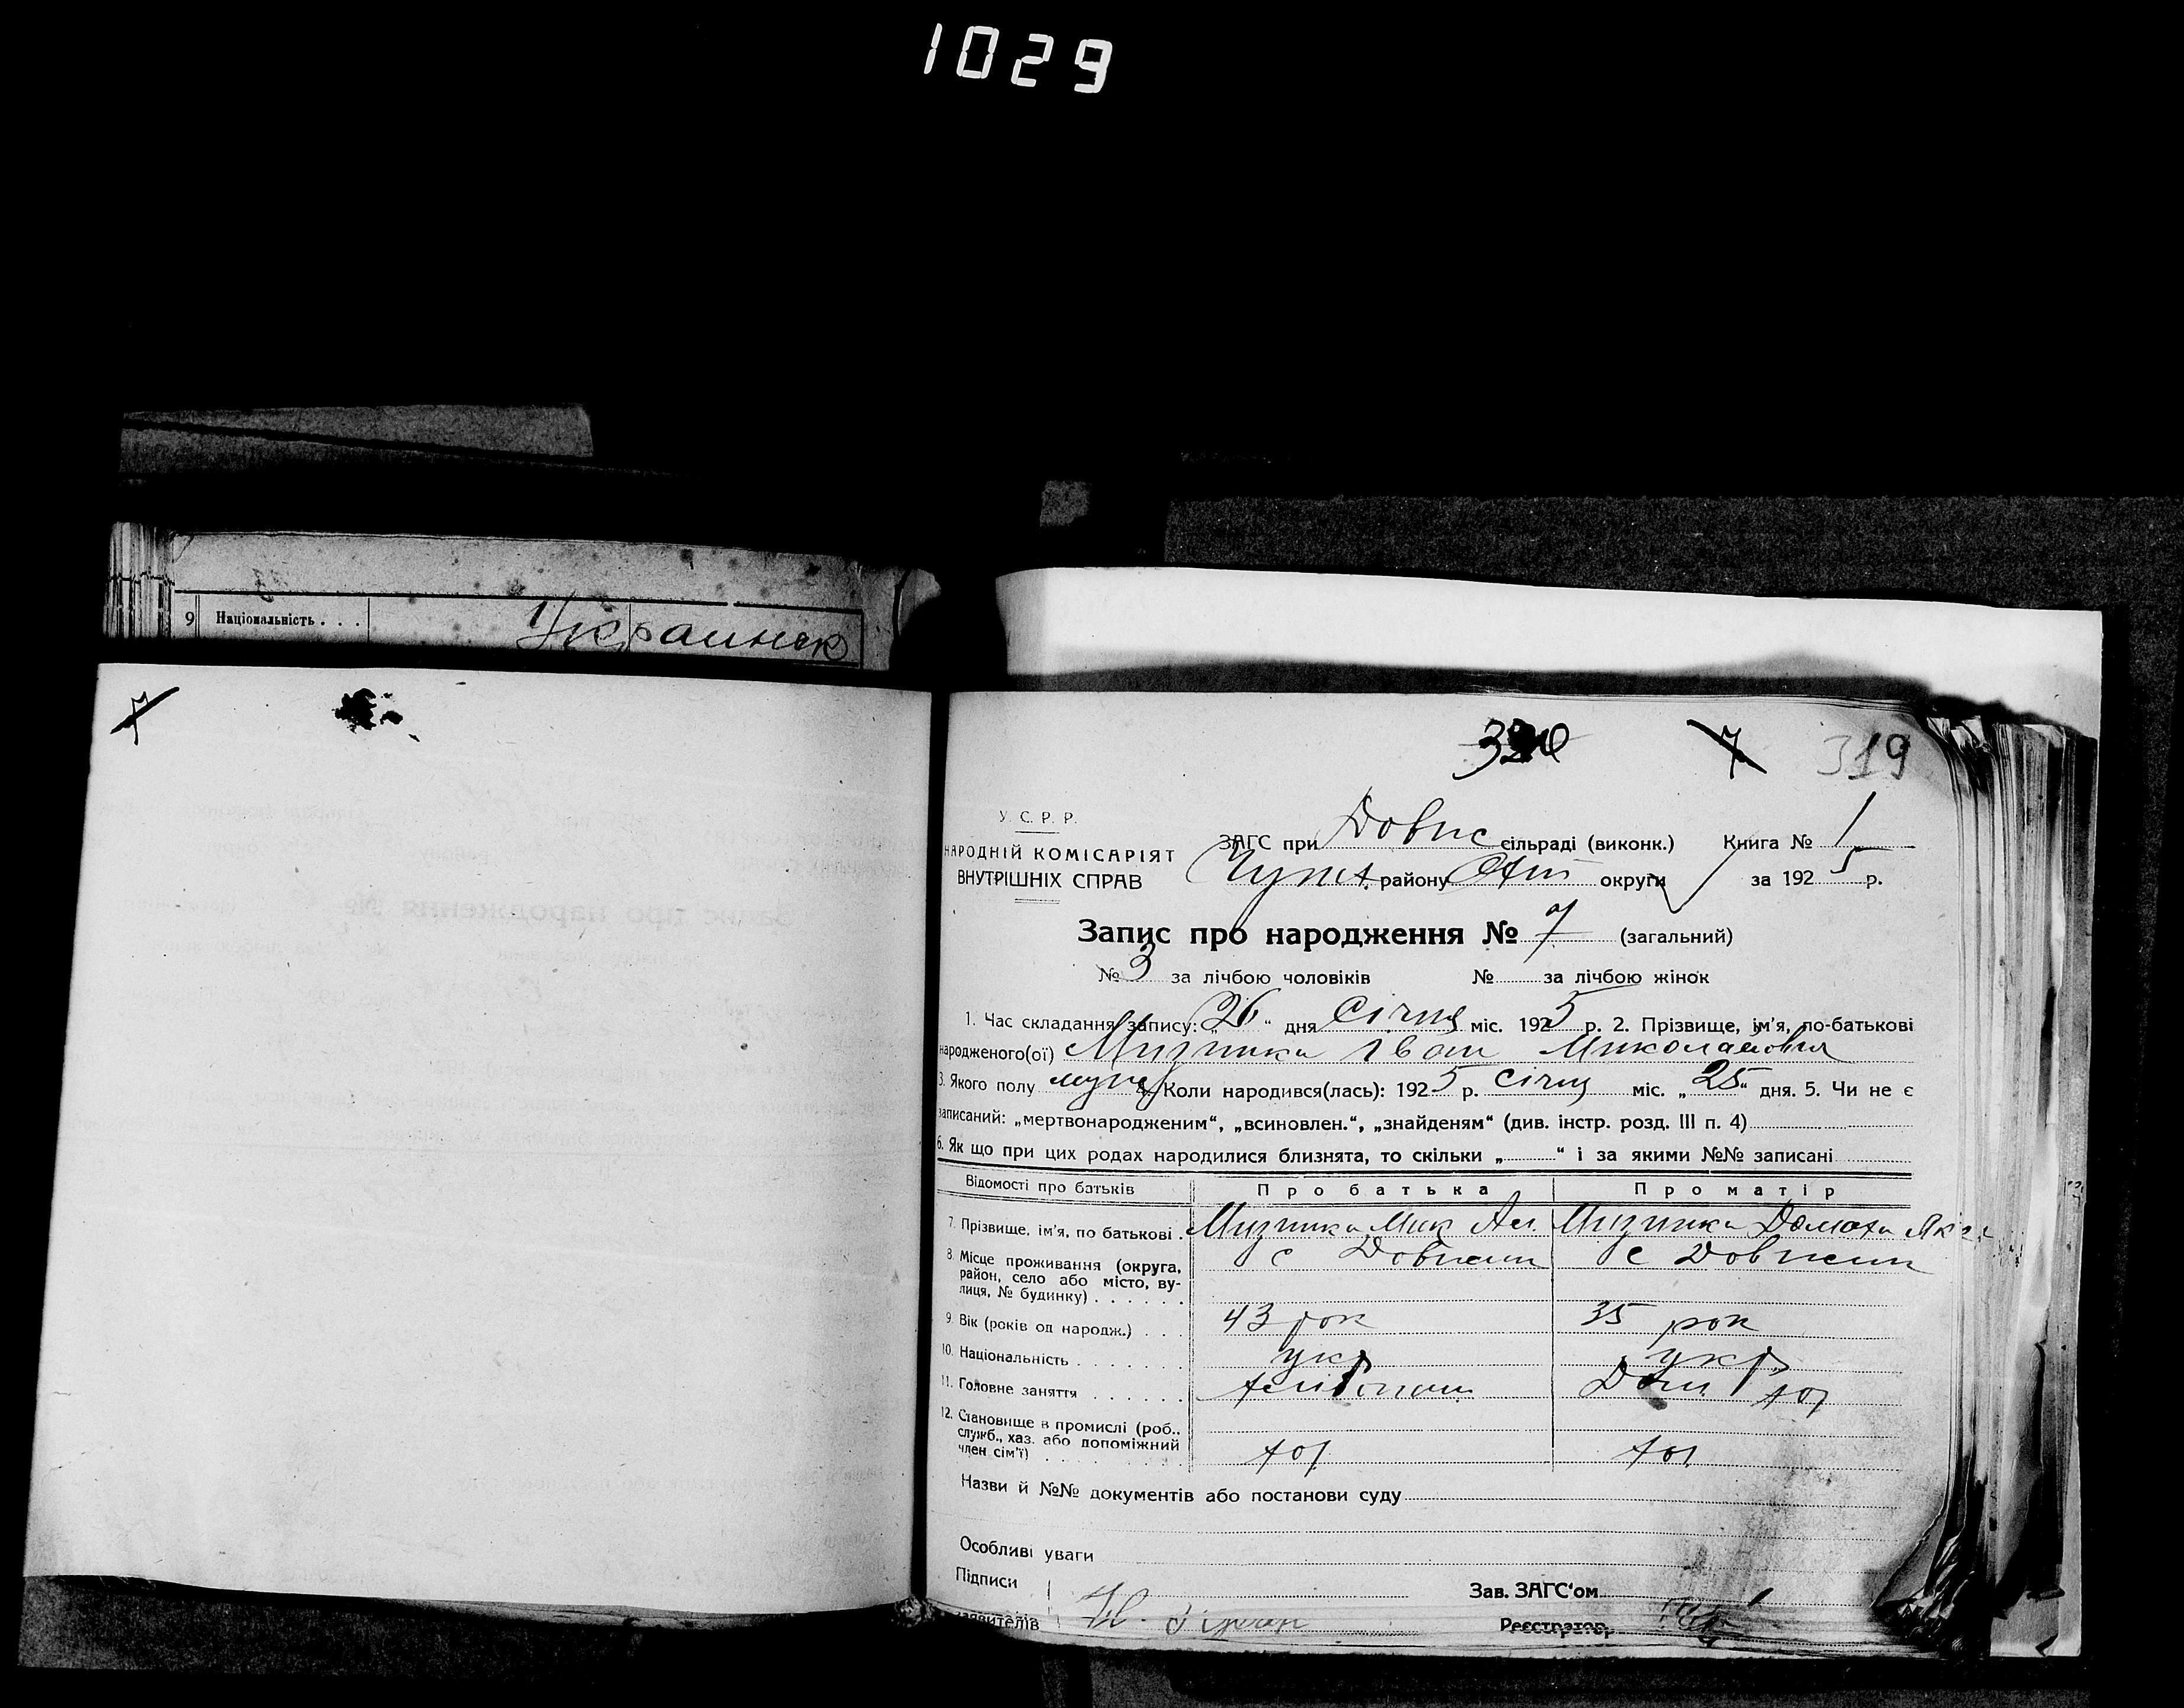 1029
9 Національність . . . Украинск
7
7 319
У. С. Р. Р.
НАРОДНІЙ КОМІСАРІЯТ
ВНУТРІШНІХ СПРАВ
ЗАГС при Довжс сільраді (виконк.) Книга № 1
району округи за 1925 р.
Запис про народження № 7 (загальний)
№ 3 за лічбою чоловіків № за лічбою жінок
1. Час складання запису: „26“ дня Січня міс. 1925 р. 2. Прізвище, ім’я, по-батькові
народженого(ої) Іван Миколайович
3. Якого полу муж 4. Коли народився(лась): 1925 р. Січня міс. „25“ дня. 5. Чи не є
записаний: „мертвонародженим“, „всиновлен.“, „знайденям“ (див. інстр. розд. III п. 4)
6. Як що при цих родах народилися близнята, то скільки „ “ і за якими №№ записані
Відомості про батьків Про батька Про матір
7. Прізвище, ім’я, по батькові . Мик Домаха
8. Місце проживання (округа, с с
район, село або місто, ву-
лиця, № будинку) . . . . . .
9. Вік (років од народж.) . . . 43 рок 35 рок
10. Національність . . . . . . . укр укр
11. Головне заняття . . . . . . Дом
12. Становище в промислі (роб.,
служб., хаз. або допоміжний
член сім’ї) . . . . . . .
Назви й №№ документів або постанови суду
Особливі уваги
Підписи Зав. ЗАГС‘ом
заявителів Реєстратор